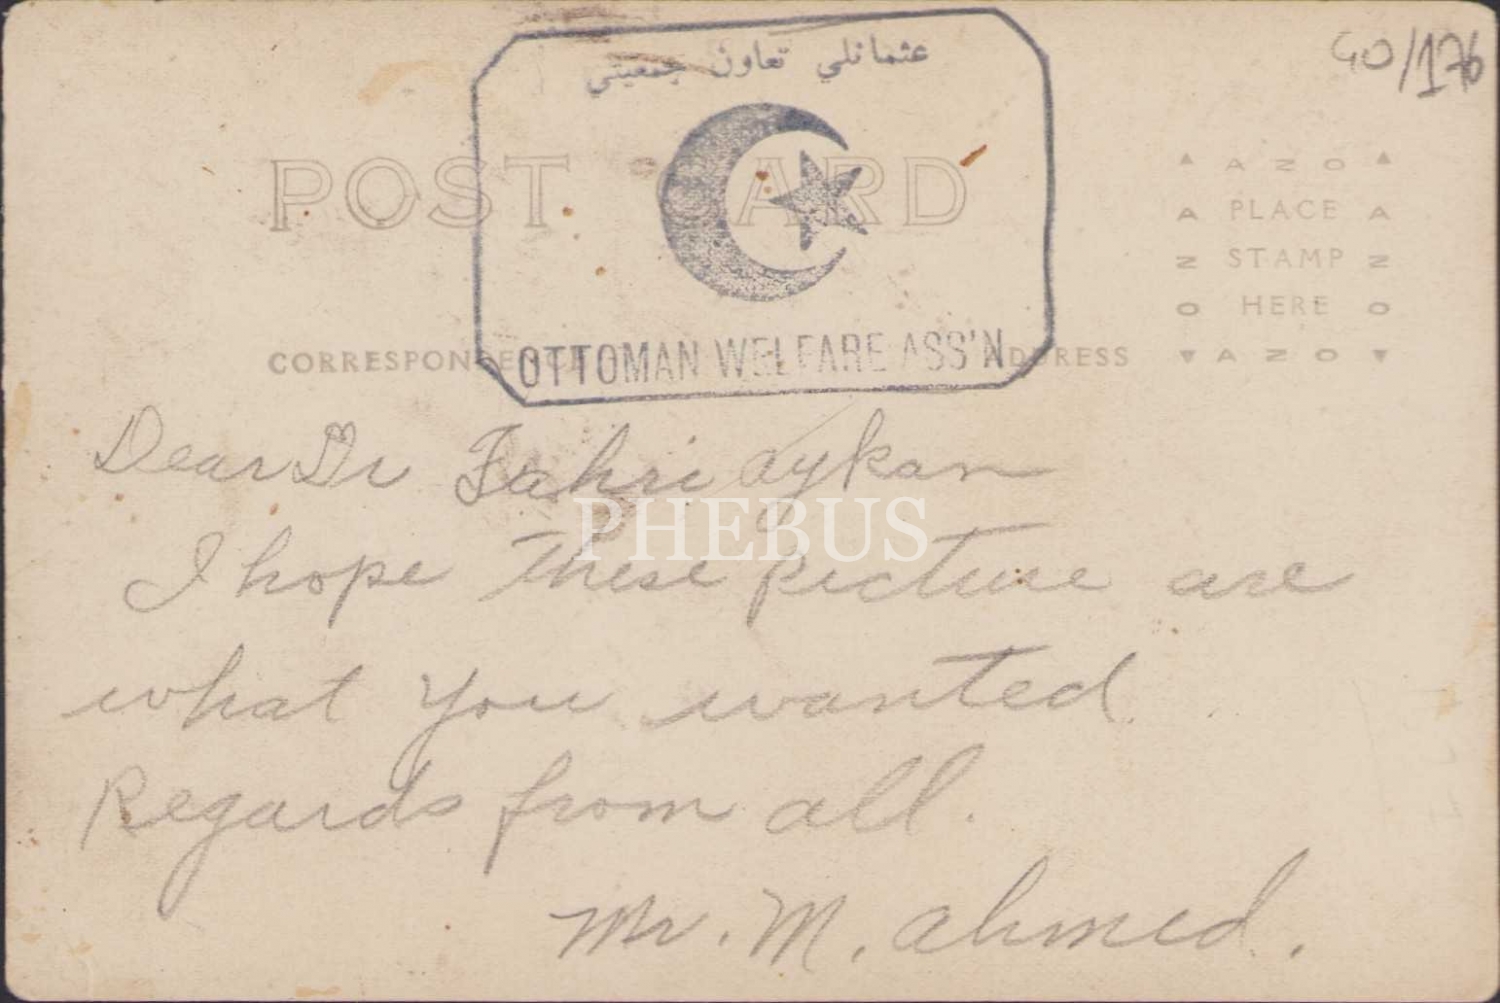 عثمانلي تعاون جمعيتي
GO/176
POST CARD
▲ A Z O ▲
A PLACE A
N STAMP N
O HERE O
▼ A Z O ▼
OTTOMAN WELFARE ASS'N
CORRESPONDENCE ADDRESS
Dear Dr Fahri aykan
PHEBUS
I hope These picture are
what you wanted
Regards from all.
Mr. M. ahmed.